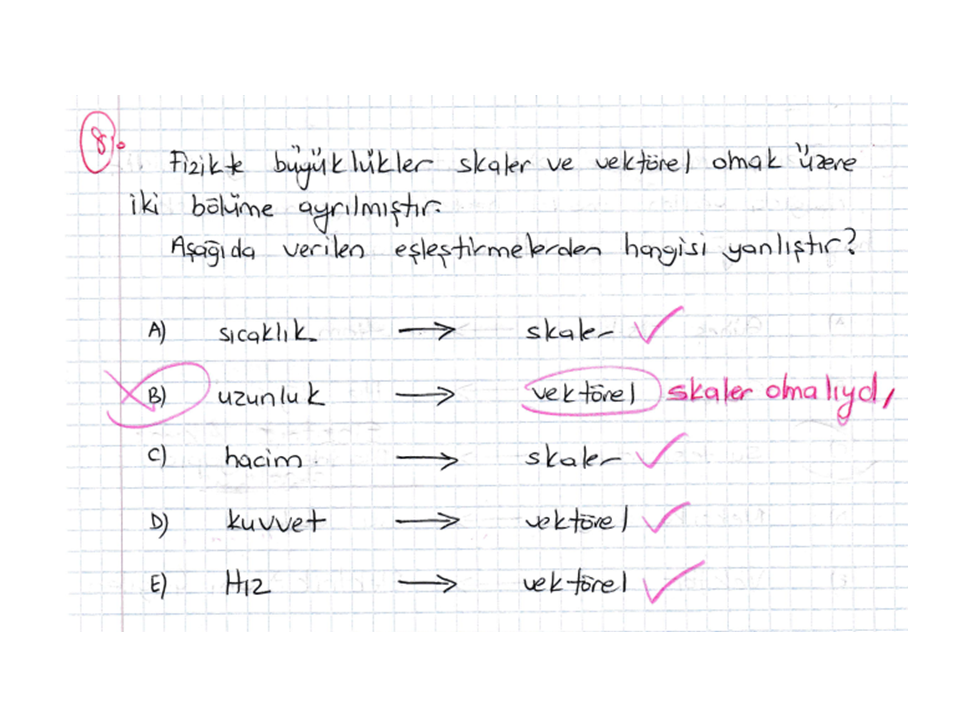 8.
Fizikte büyüklükler skaler ve vektörel olmak üzere
iki bölüme ayrılmıştır.
Aşağıda verilen eşleştirmelerden hangisi yanlıştır?
A) sıcaklık → skaler ✓
B) uzunluk → vektörel skaler olmalıydı
C) hacim → skaler ✓
D) kuvvet → vektörel ✓
E) Hız → vektörel ✓